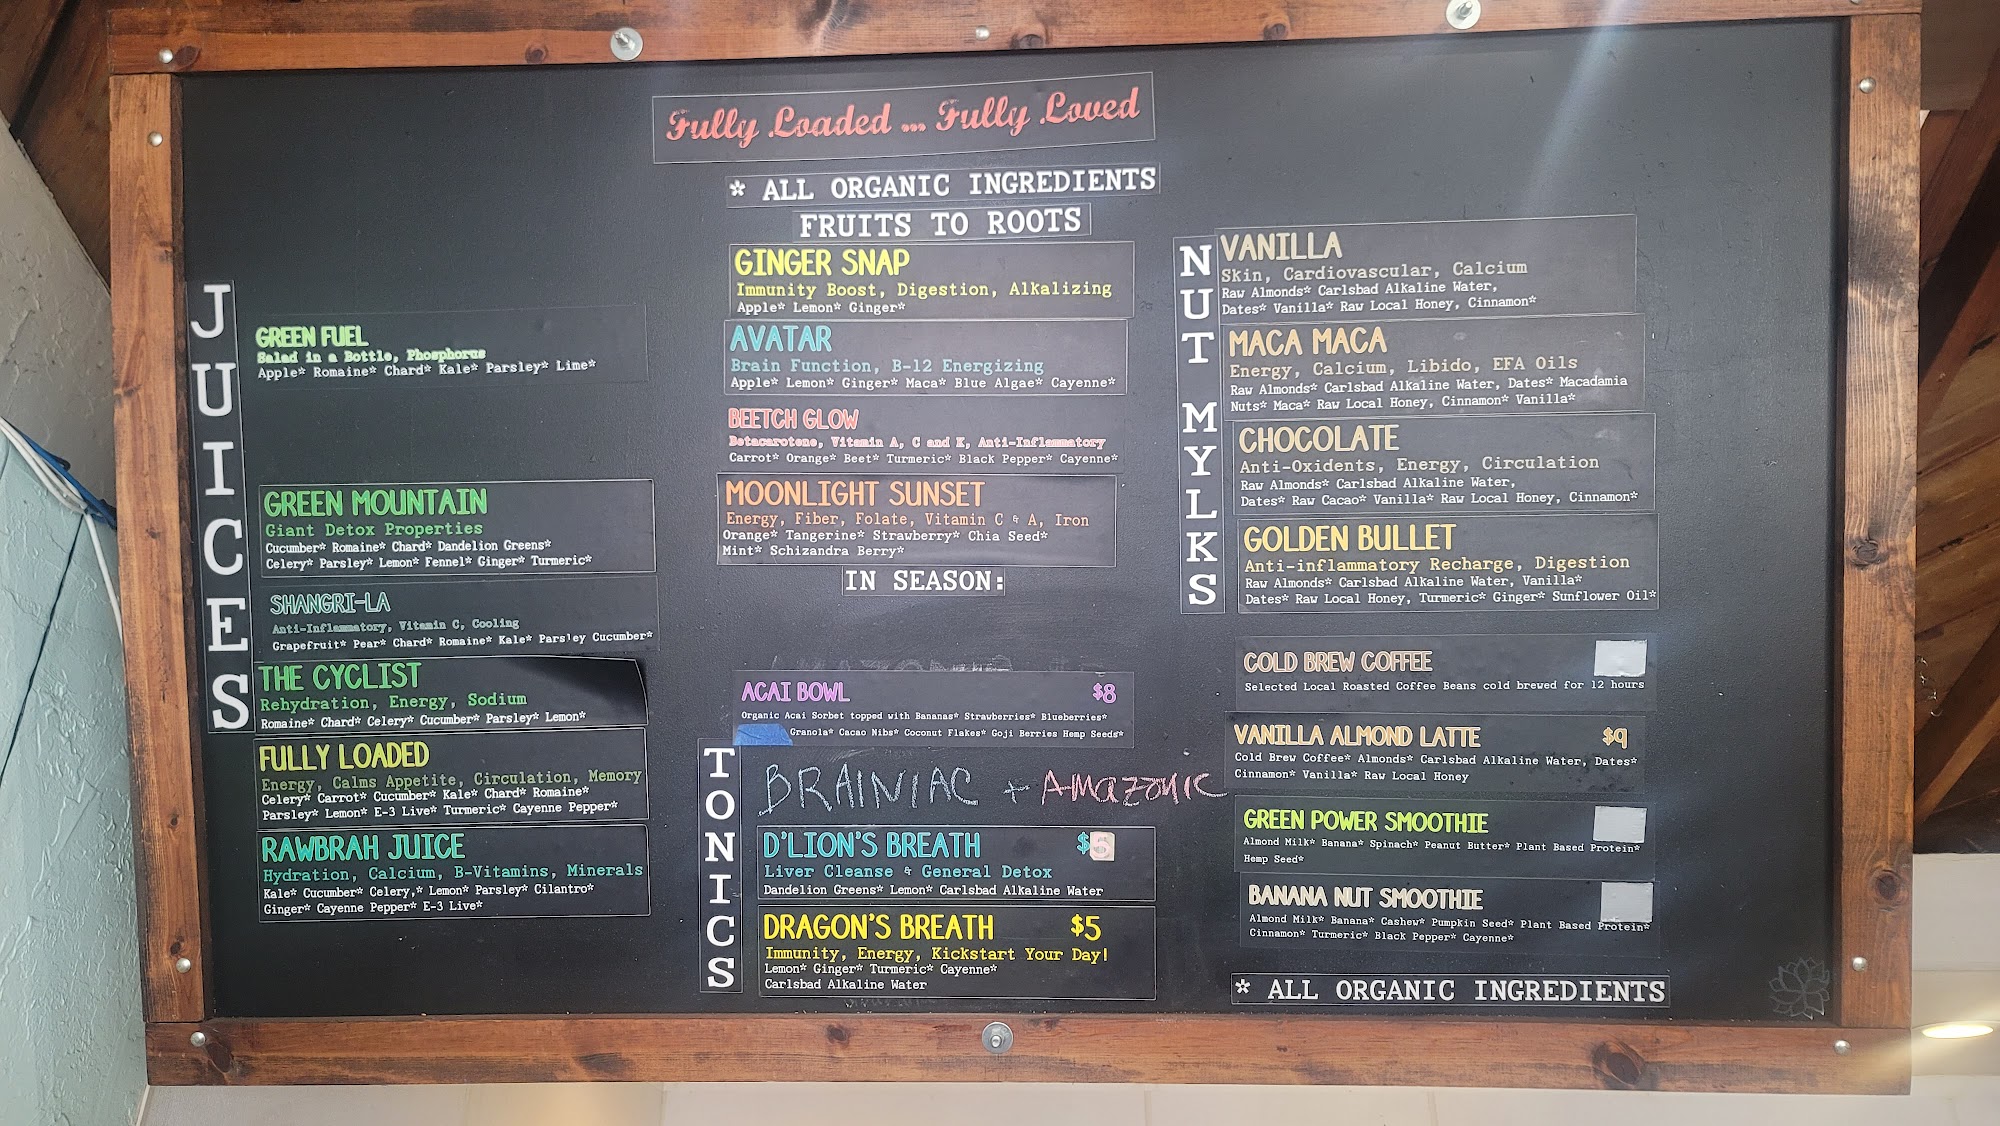 Fully Loaded ... Fully Loved
* ALL ORGANIC INGREDIENTS
JUICES
GREEN FUEL
Salad in a Bottle, Phosphorus
Apple* Romaine* Chard* Kale* Parsley* Lime*
GREEN MOUNTAIN
Giant Detox Properties
Cucumber* Romaine* Chard* Dandelion Greens*
Celery* Parsley* Lemon* Fennel* Ginger* Turmeric*
SHANGRI-LA
Anti-Inflammatory, Vitamin C, Cooling
Grapefruit* Pear* Chard* Romaine* Kale* Parsley Cucumber*
THE CYCLIST
Rehydration, Energy, Sodium
Romaine* Chard* Celery* Cucumber* Parsley* Lemon*
FULLY LOADED
Energy, Calms Appetite, Circulation, Memory
Celery* Carrot* Cucumber* Kale* Chard* Romaine*
Parsley* Lemon* E-3 Live* Turmeric* Cayenne Pepper*
RAWBRAH JUICE
Hydration, Calcium, B-Vitamins, Minerals
Kale* Cucumber* Celery,* Lemon* Parsley* Cilantro*
Ginger* Cayenne Pepper* E-3 Live*
FRUITS TO ROOTS
GINGER SNAP
Immunity Boost, Digestion, Alkalizing
Apple* Lemon* Ginger*
AVATAR
Brain Function, B-12 Energizing
Apple* Lemon* Ginger* Maca* Blue Algae* Cayenne*
BEETCH GLOW
Betacarotene, Vitamin A, C and K, Anti-Inflammatory
Carrot* Orange* Beet* Turmeric* Black Pepper* Cayenne*
MOONLIGHT SUNSET
Energy, Fiber, Folate, Vitamin C & A, Iron
Orange* Tangerine* Strawberry* Chia Seed*
Mint* Schizandra Berry*
IN SEASON:
ACAI BOWL $8
Organic Acai Sorbet topped with Bananas* Strawberries* Blueberries*
Granola* Cacao Nibs* Coconut Flakes* Goji Berries Hemp Seeds*
TONICS
BRAINIAC + AMAZONIC
D'LION'S BREATH $5
Liver Cleanse & General Detox
Dandelion Greens* Lemon* Carlsbad Alkaline Water
DRAGON'S BREATH $5
Immunity, Energy, Kickstart Your Day!
Lemon* Ginger* Turmeric* Cayenne*
Carlsbad Alkaline Water
NUT MYLKS
VANILLA
Skin, Cardiovascular, Calcium
Raw Almonds* Carlsbad Alkaline Water,
Dates* Vanilla* Raw Local Honey, Cinnamon*
MACA MACA
Energy, Calcium, Libido, EFA Oils
Raw Almonds* Carlsbad Alkaline Water, Dates* Macadamia
Nuts* Maca* Raw Local Honey, Cinnamon* Vanilla*
CHOCOLATE
Anti-Oxidents, Energy, Circulation
Raw Almonds* Carlsbad Alkaline Water,
Dates* Raw Cacao* Vanilla* Raw Local Honey, Cinnamon*
GOLDEN BULLET
Anti-inflammatory Recharge, Digestion
Raw Almonds* Carlsbad Alkaline Water, Vanilla*
Dates* Raw Local Honey, Turmeric* Ginger* Sunflower Oil*
COLD BREW COFFEE
Selected Local Roasted Coffee Beans cold brewed for 12 hours
VANILLA ALMOND LATTE $9
Cold Brew Coffee* Almonds* Carlsbad Alkaline Water, Dates*
Cinnamon* Vanilla* Raw Local Honey
GREEN POWER SMOOTHIE
Almond Milk* Banana* Spinach* Peanut Butter* Plant Based Protein*
Hemp Seed*
BANANA NUT SMOOTHIE
Almond Milk* Banana* Cashew* Pumpkin Seed* Plant Based Protein*
Cinnamon* Turmeric* Black Pepper* Cayenne*
* ALL ORGANIC INGREDIENTS